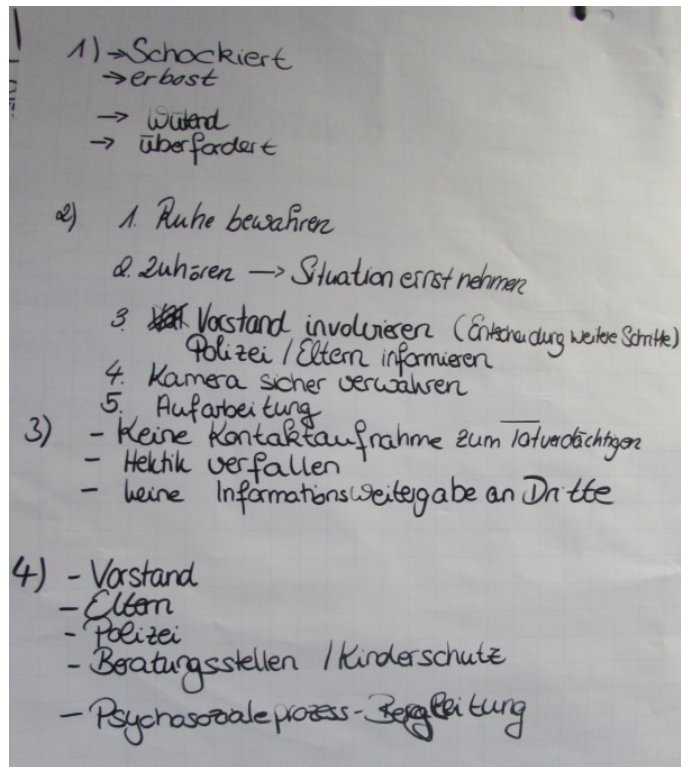 1) → Schockiert
→ erbost
→ wütend
→ überfordert
2) 1. Ruhe bewahren
2. Zuhören → Situation ernst nehmen
3. Vorstand involvieren (Entscheidung weitere Schritte)
Polizei / Eltern informieren
4. Kamera sicher verwahren
5. Aufarbeitung
3) - Keine Kontaktaufnahme zum Tatverdächtigen
- Hektik verfallen
- keine Informationsweitergabe an Dritte
4) - Vorstand
- Eltern
- Polizei
- Beratungsstellen / Kinderschutz
- Psychosoziale prozess-Begleitung